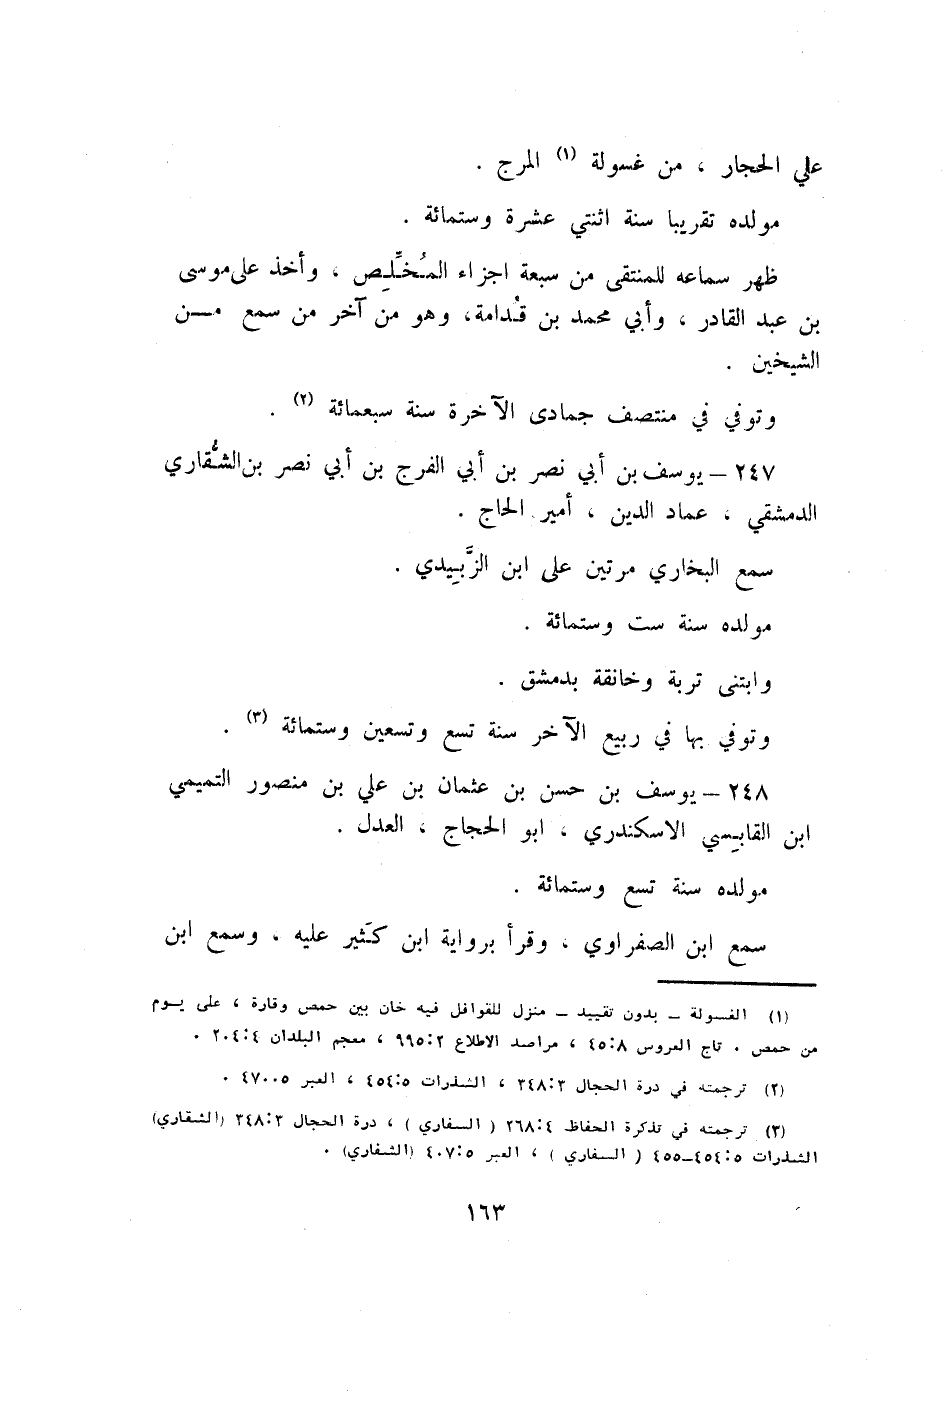 علي الحجار ، من غسولة (١) المرج .
مولده تقريبا سنة اثنتي عشرة وستمائة .
ظهر سماعه للمنتقى من سبعة اجزاء المُخَلِّص ، وأخذ على موسى
بن عبد القادر ، وأبي محمد بن قُدامة، وهو من آخر من سمع مـــن
الشيخين .
وتوفي في منتصف جمادى الآخرة سنة سبعمائة (٢) .
٢٤٧ – يوسف بن أبي نصر بن أبي الفرج بن أبي نصر بن الشُّقاري
الدمشقي ، عماد الدين ، أمير الحاج .
سمع البخاري مرتين على ابن الزَّبِيدي .
مولده سنة ست وستمائة .
وابتنى تربة وخانقة بدمشق .
وتوفي بها في ربيع الآخر سنة تسع وتسعين وستمائة (٣) .
٢٤٨ – يوسف بن حسن بن عثمان بن علي بن منصور التميمي
ابن القابِسي الاسكندري ، ابو الحجاج ، العدل .
مولده سنة تسع وستمائة .
سمع ابن الصفراوي ، وقرأ برواية ابن كَثير عليه ، وسمع ابن
(١) الغسولة – بدون تقييد – منزل للقوافل فيه خان بين حمص وقارة ، على يـوم
من حمص . تاج العروس ٤٥:٨ ، مراصد الاطلاع ٩٩٥:٢ ، معجم البلدان ٢٠٤:٤ .
(٢) ترجمته في درة الحجال ٣٤٨:٣ ، الشذرات ٤٥٤:٥ ، العبر ٤٧٠٠٥ .
(٣) ترجمته في تذكرة الحفاظ ٢٦٨:٤ ( السفاري ) ، درة الحجال ٣٤٨:٣ (الشقاري)
الشذرات ٤٥٤:٥–٤٥٥ ( السفاري ) ، العبر ٤٠٧:٥ (الشفاري) .
١٦٣